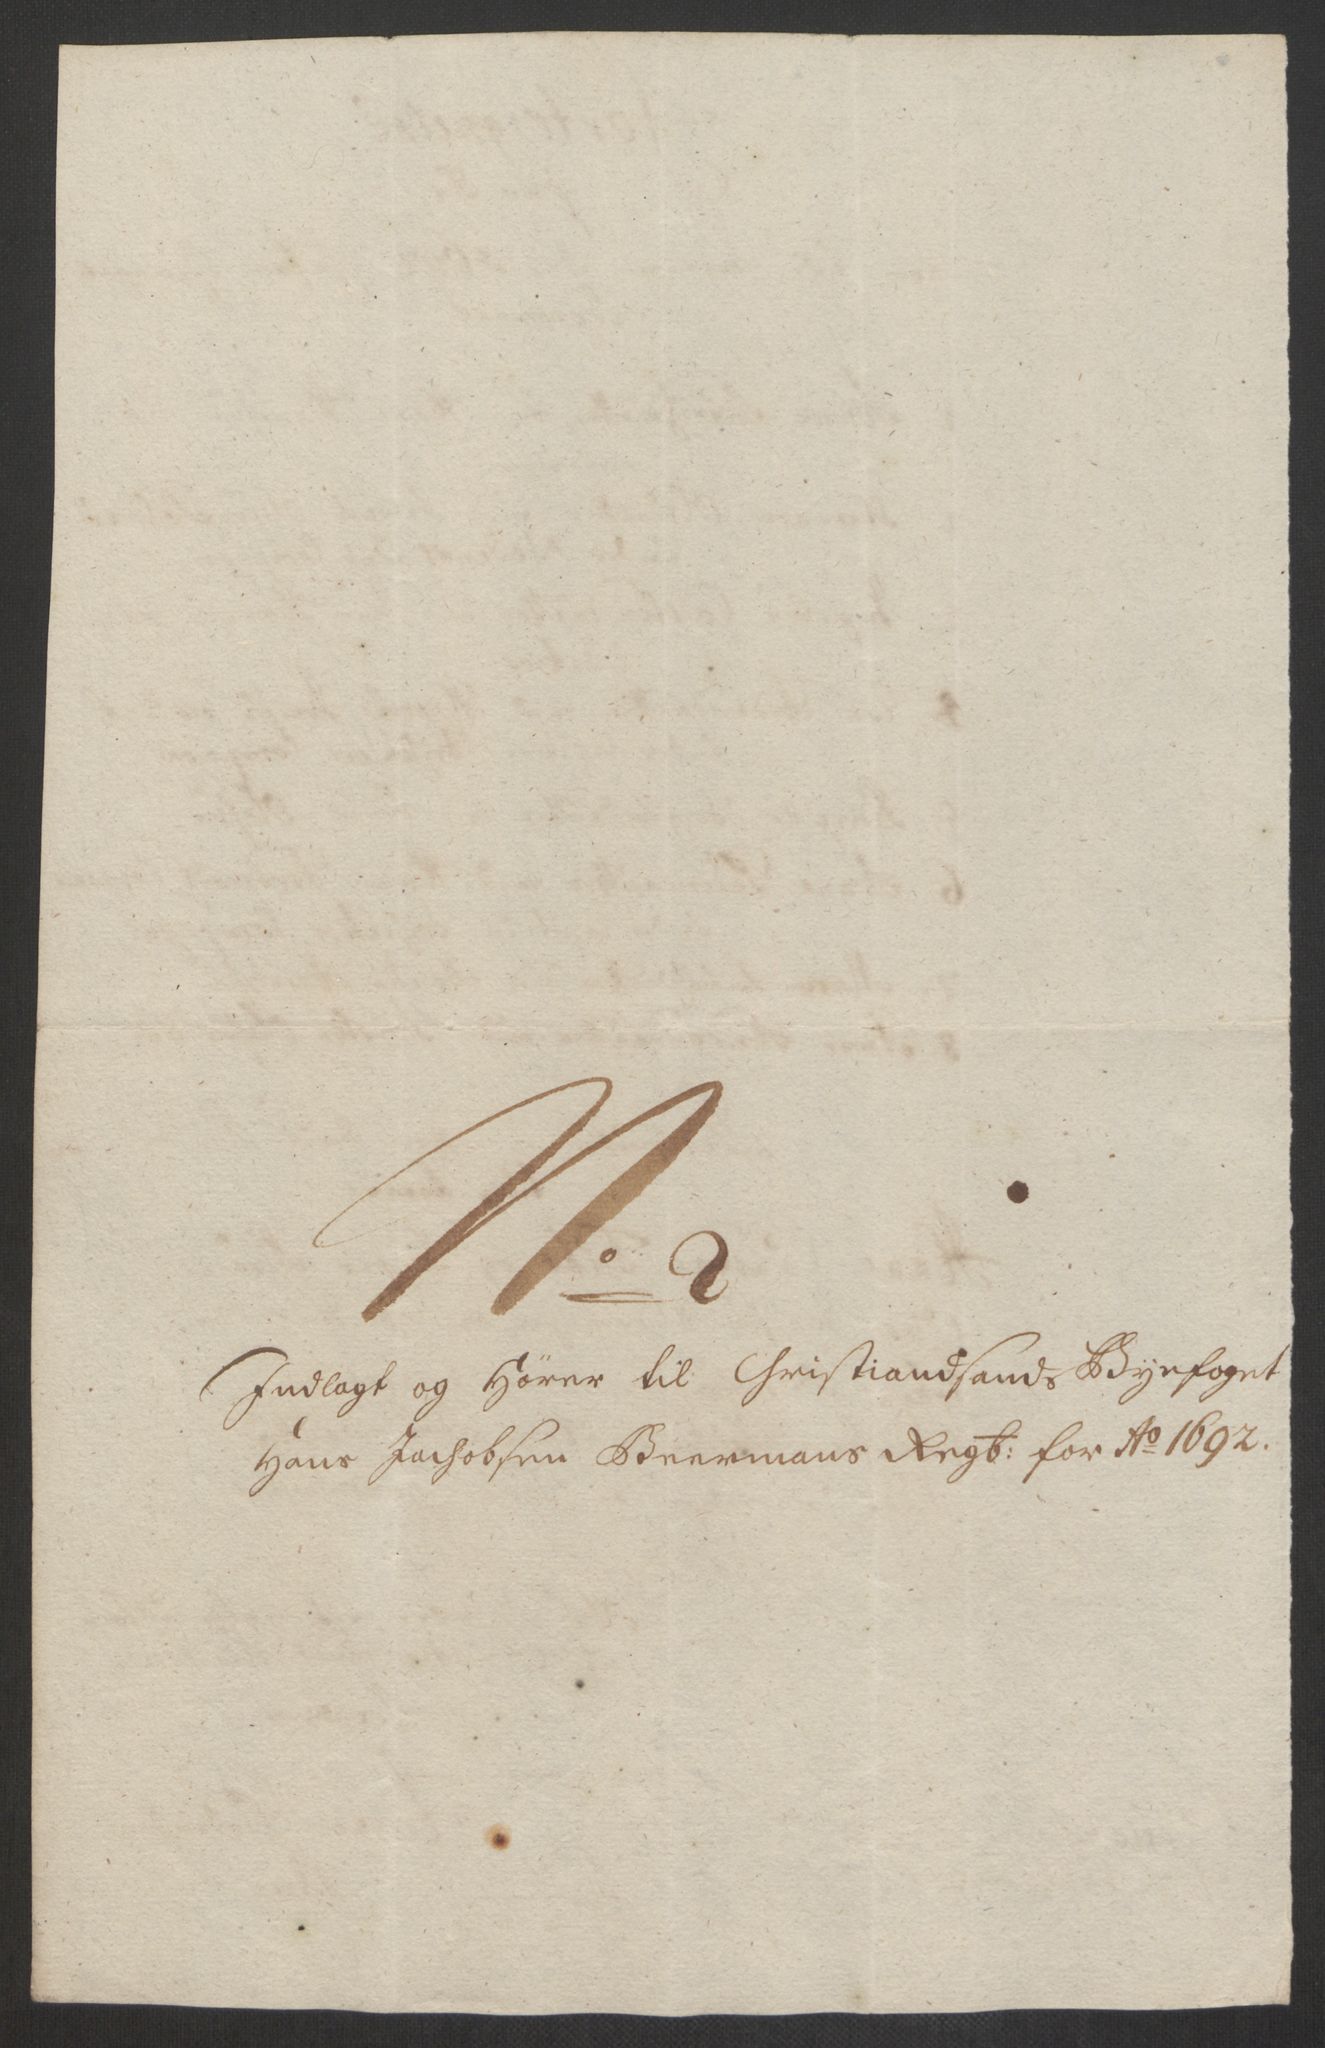 No 2
Indlagt og Hörer til Christiandsands Byefoget
Hans Jachobsen Beermans Regb: for Ao 1692.